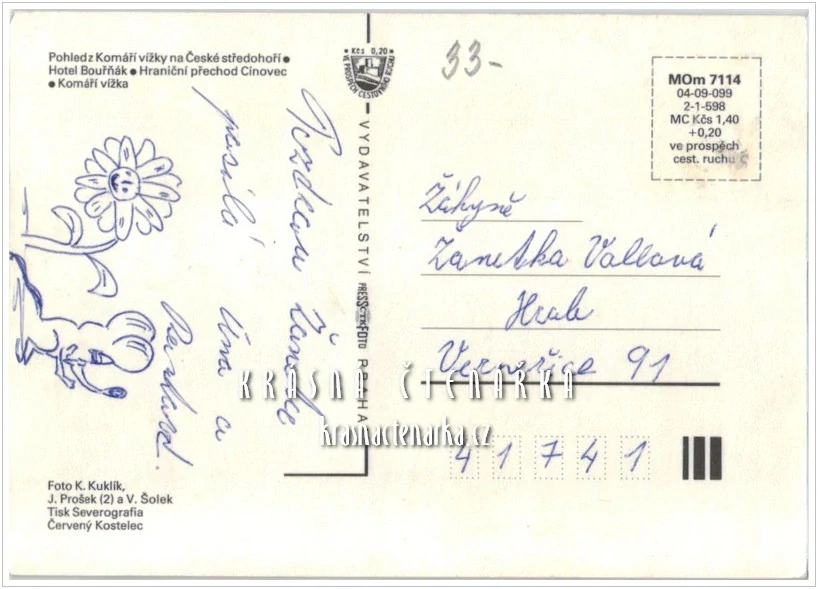 Pohled z Komáří vížky na České středohoří ●
Hotel Bouřňák ● Hraniční přechod Cínovec
● Komáří vížka
Kčs 0,20
VE PROSPĚCH CESTOVNÍHO RUCHU
33-
MOm 7114
04-09-099
2-1-598
MC Kčs 1,40
+0,20
ve prospěch
cest. ruchu
Pozdrav Žanetce
posílá Una a
VYDAVATELSTVÍ PRESSFOTO PRAHA
Žákyně
Žanetka Vallová
Hrob
Verneřice 91
41741
KRÁSNÁ ČTENÁŘKA
krasnactenarka.cz
Foto K. Kuklík,
J. Prošek (2) a V. Šolek
Tisk Severografia
Červený Kostelec